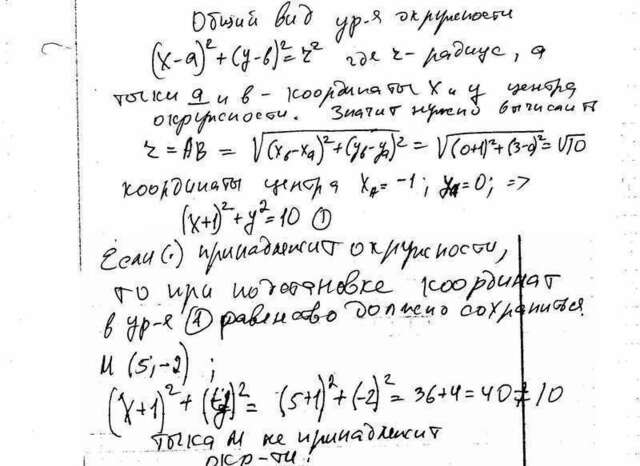 Общий вид ур-я окружности
(x-a)²+(y-в)²=r² где r-радиус, а
точки а и в - координаты X и y центра
окружности. Значит нужно вычислить
r=AB = √(x_в-x_a)²+(y_в-y_a)² = √(0+1)²+(3-0)² = √10
координаты центра x_A=-1; y_A=0; =>
(x+1)²+y²=10 ①
Если (·) принадлежит окружности,
то при подстановке координат
в ур-я ① равенство должно сохраниться.
M (5;-2) ;
(x+1)²+(y)²= (5+1)²+(-2)²=36+4=40≠10
точка M не принадлежит
окр-ти.